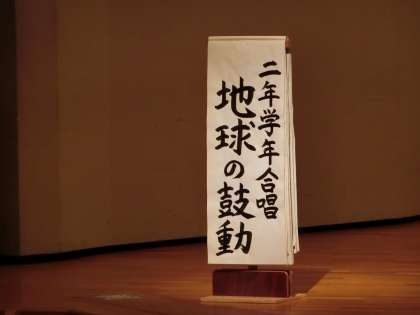 二年学年合唱
地球の鼓動